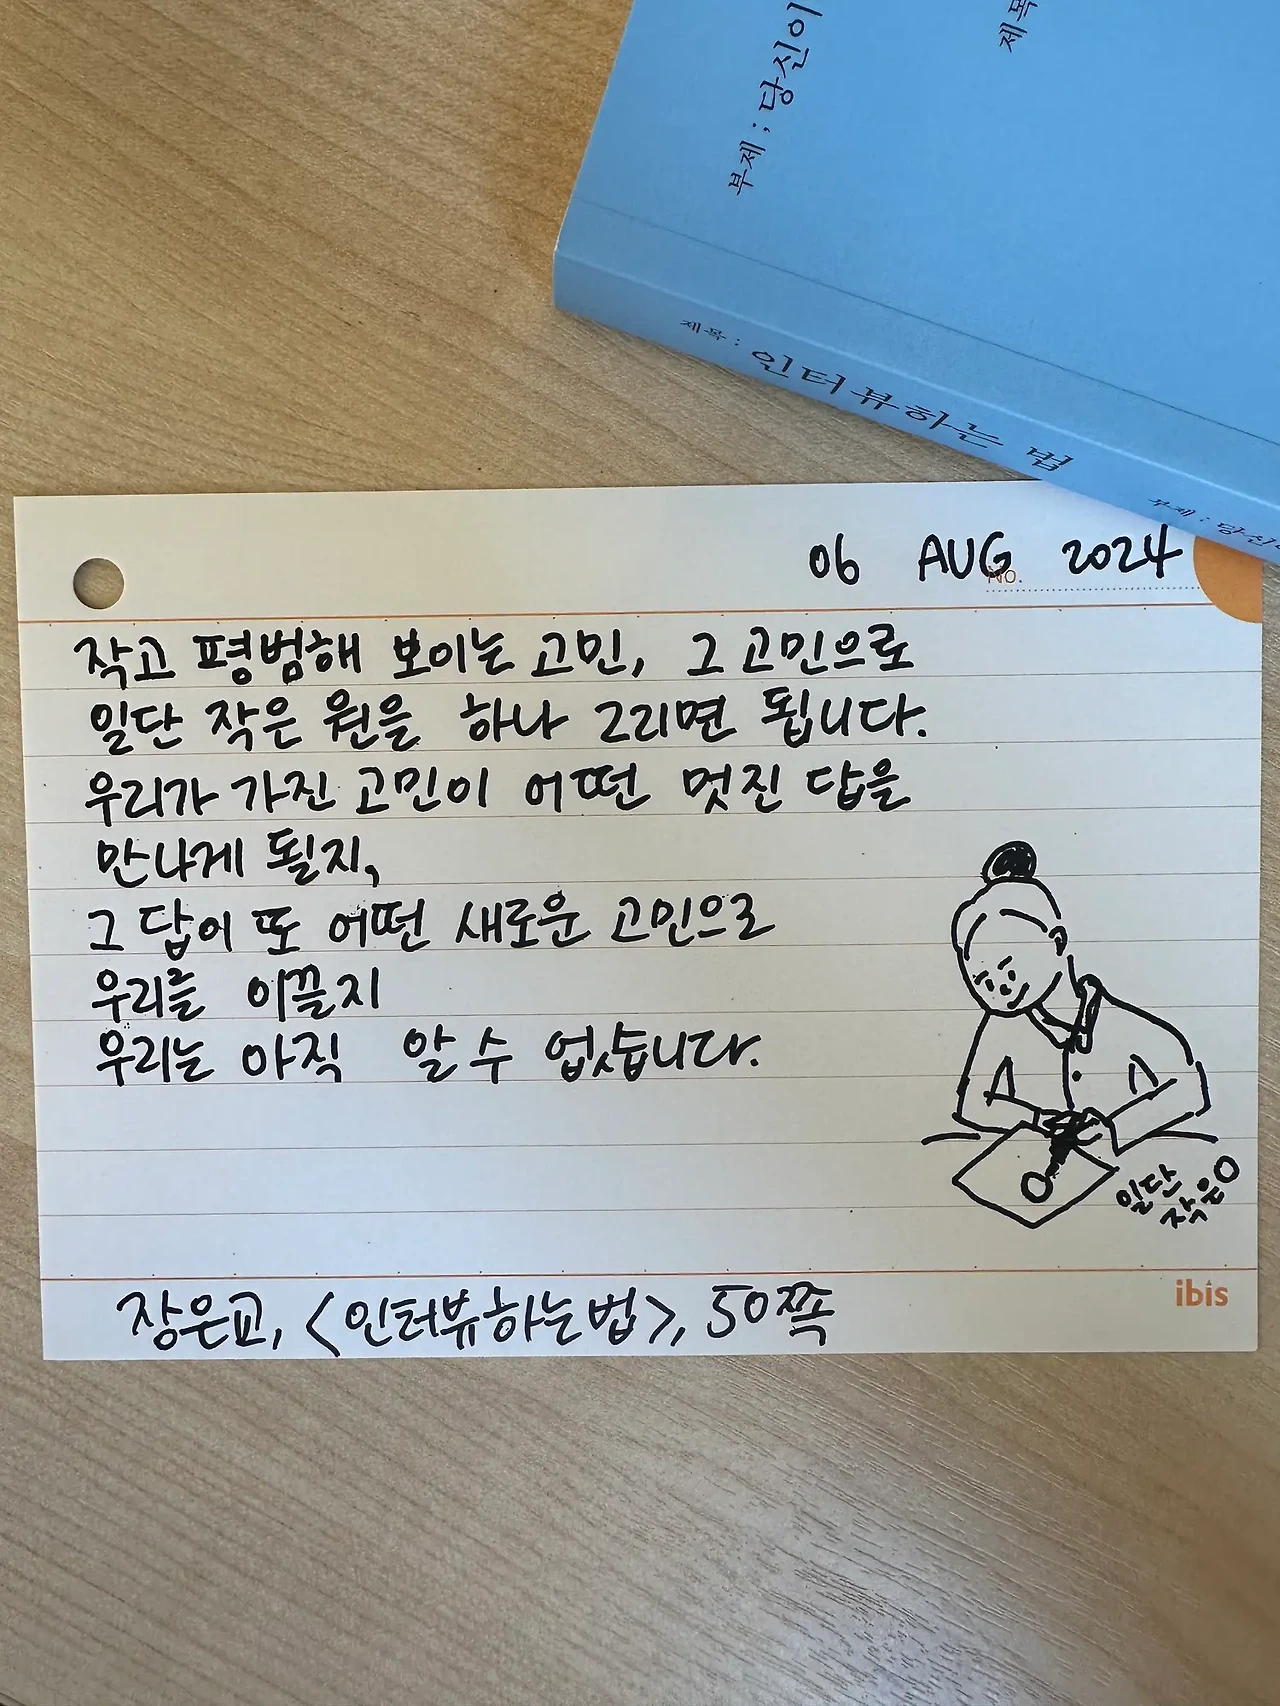 부제 ; 당신이
제목
제목 : 인터뷰하는 법
부제 : 당신
06 AUG 2024
No.
작고 평범해 보이는 고민, 그 고민으로
일단 작은 원을 하나 그리면 됩니다.
우리가 가진 고민이 어떤 멋진 답을
만나게 될지,
그 답이 또 어떤 새로운 고민으로
우리를 이끌지
우리는 아직 알 수 없습니다.
일단
작은 O
ibis
장은교, <인터뷰하는 법>, 50쪽